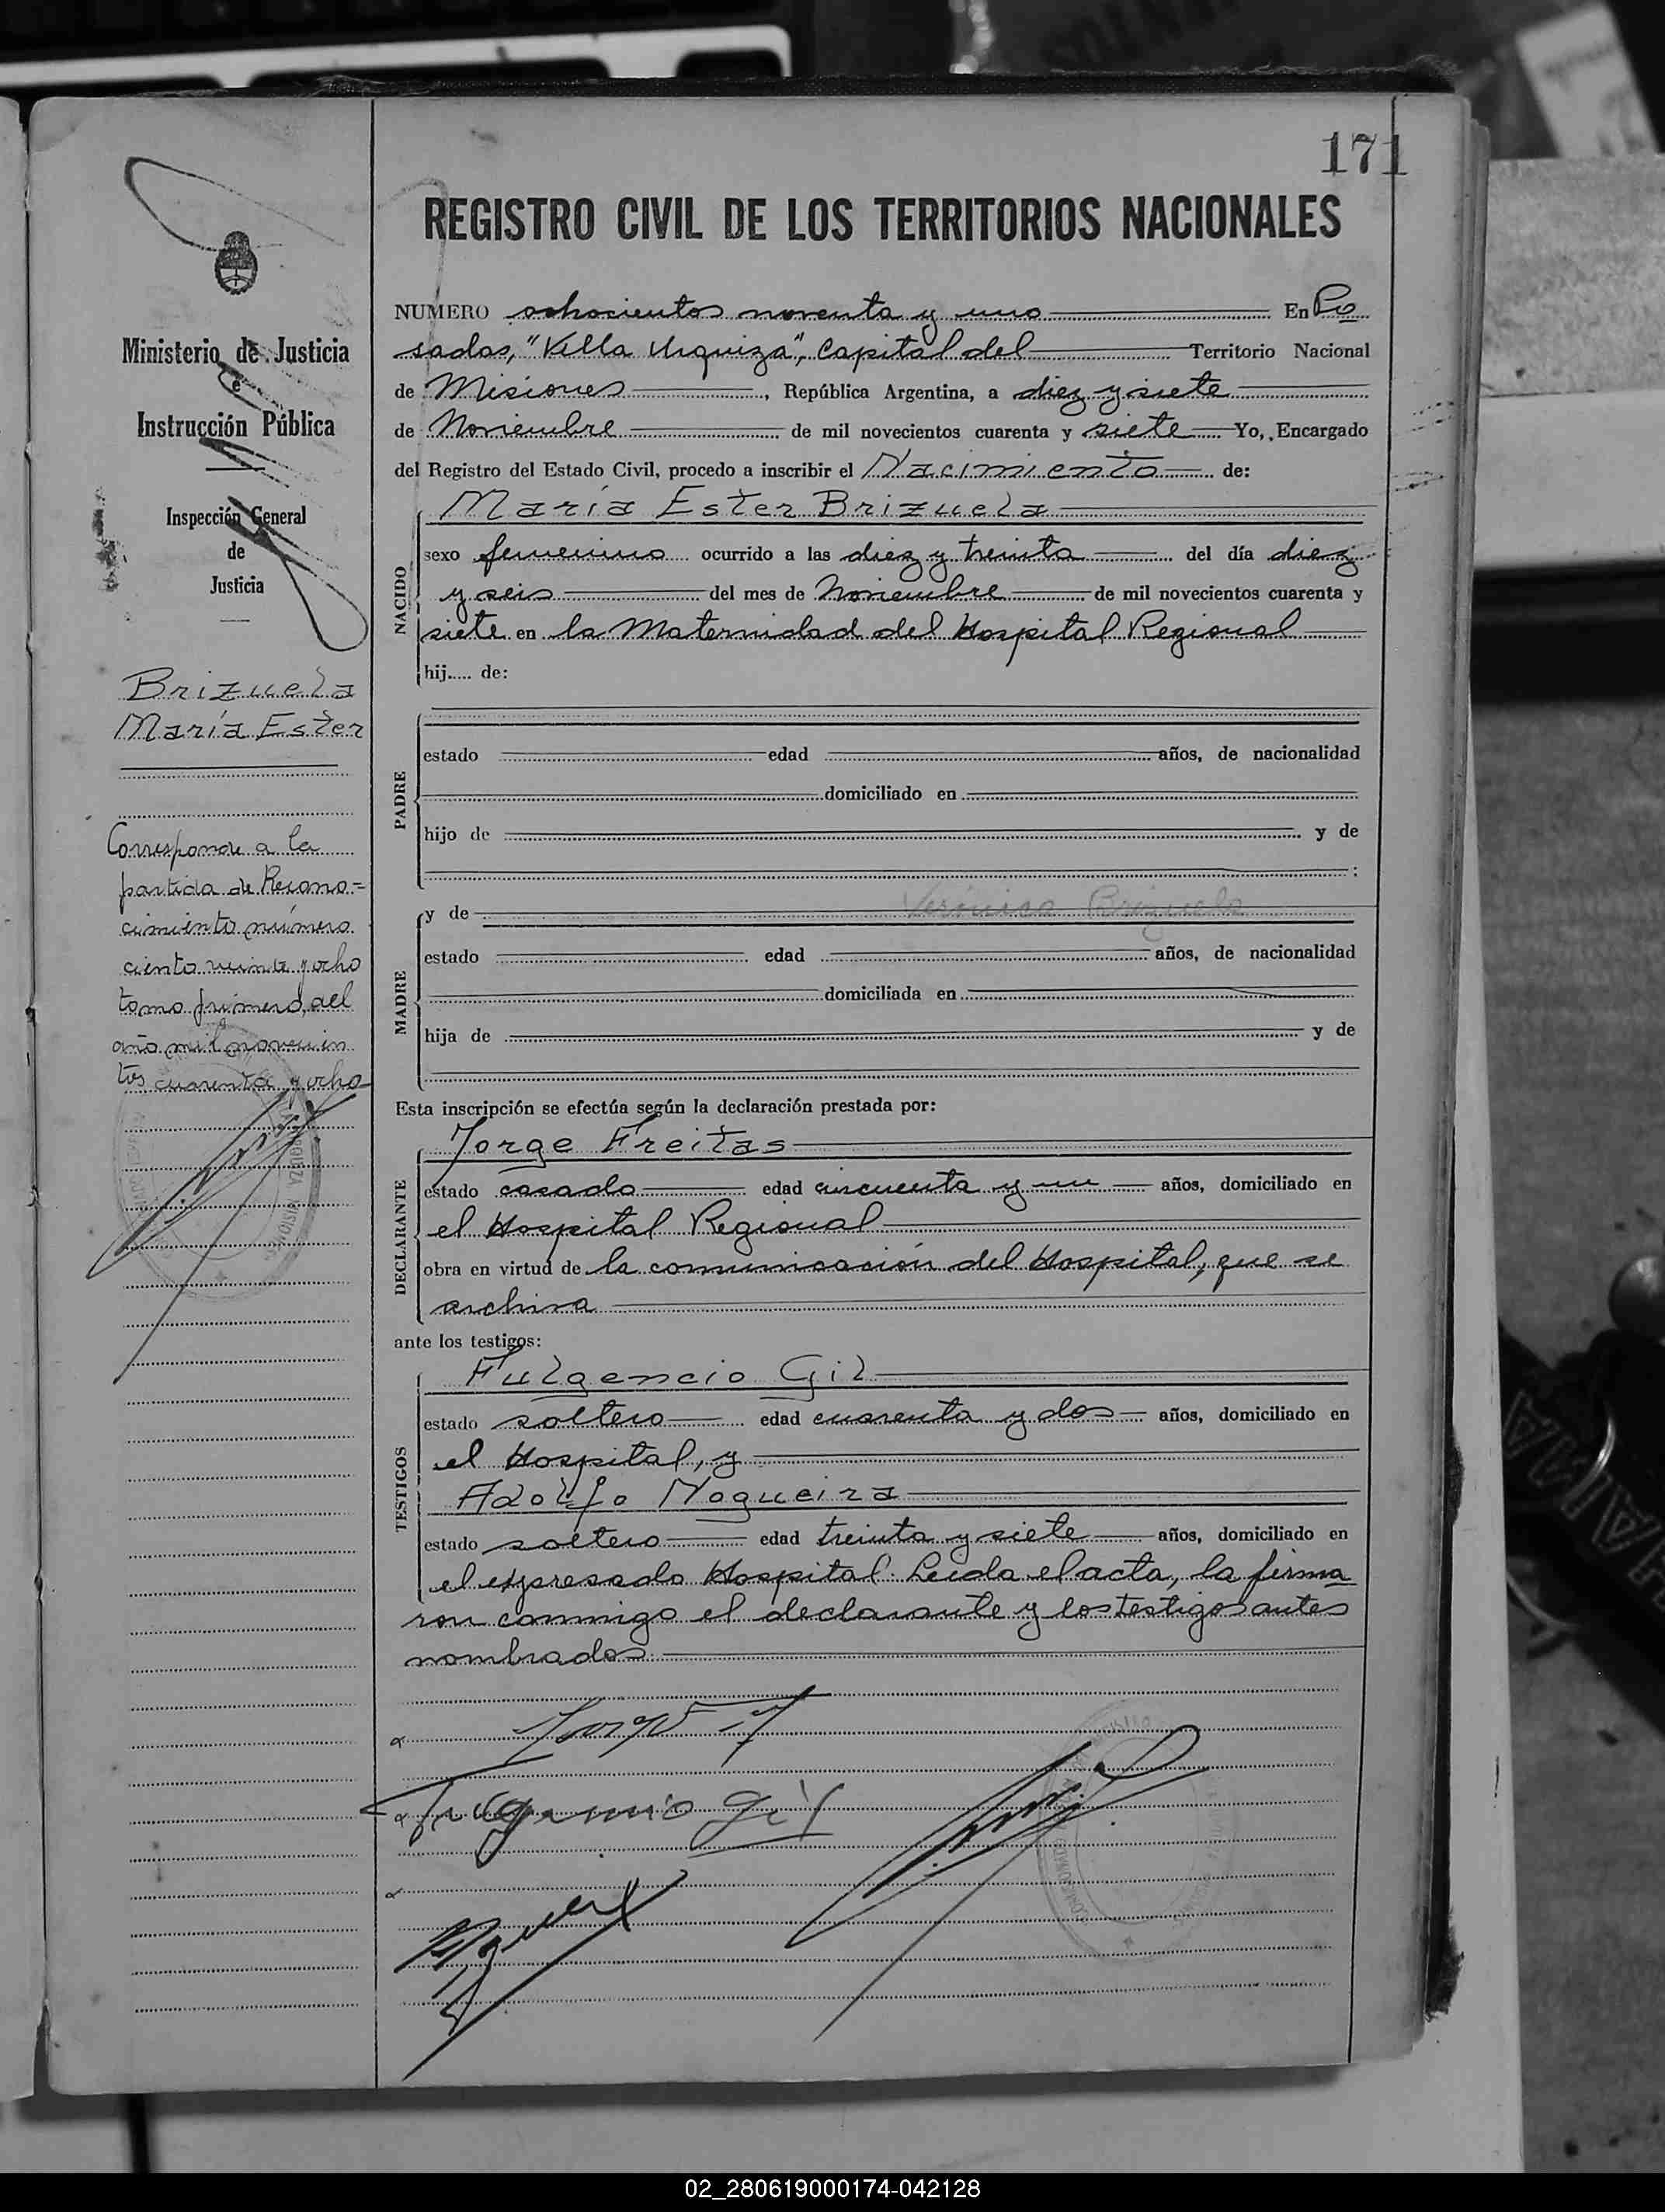 171
REGISTRO CIVIL DE LOS TERRITORIOS NACIONALES
Ministerio de Justicia
e
Instrucción Pública
Inspección General
de
Justicia
Brizuela
María Ester
Corresponde a la
partida de Recono=
cimiento número
ciento veinte y ocho
tomo primero, del
año mil novecien
tos cuarenta y ocho
NUMERO ochocientos noventa y uno En Po
sadas, "Villa Urquiza", Capital del Territorio Nacional
de Misiones, República Argentina, a diez y siete
de Noviembre de mil novecientos cuarenta y siete Yo, Encargado
del Registro del Estado Civil, procedo a inscribir el Nacimiento de:
NACIDO
María Ester Brizuela
sexo femenino ocurrido a las diez y treinta del día diez
y seis del mes de Noviembre de mil novecientos cuarenta y
siete en la Maternidad del Hospital Regional
hij..... de:
PADRE
estado edad años, de nacionalidad
domiciliado en
hijo de y de
:
MADRE
y de Verónica Brizuela
estado edad años, de nacionalidad
domiciliada en
hija de y de
Esta inscripción se efectúa según la declaración prestada por:
DECLARANTE
Jorge Freitas
estado casado edad cincuenta y un años, domiciliado en
el Hospital Regional
obra en virtud de la comunicación del Hospital, que se
archiva
ante los testigos:
TESTIGOS
Fulgencio Gil
estado soltero edad cuarenta y dos años, domiciliado en
el Hospital, y
Adolfo Nogueira
estado soltero edad treinta y siete años, domiciliado en
el expresado Hospital. Leida el acta, la firma
ron conmigo el declarante y los testigos antes
nombrados.
02_280619000174-042128